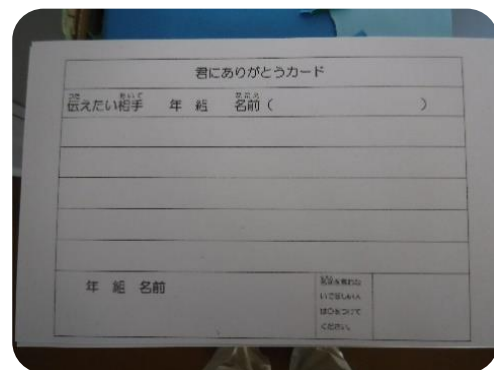 君にありがとうカード
伝えたい相手 年 組 名前( )
年 組 名前
名前を言わな
いでほしい人
は○をつけて
ください。